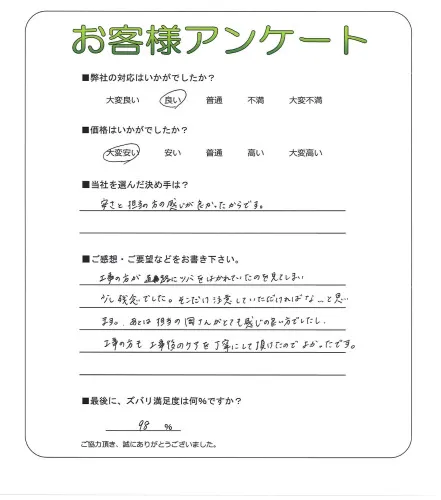 お客様アンケート
■弊社の対応はいかがでしたか？
大変良い 良い 普通 不満 大変不満
■価格はいかがでしたか？
大変安い 安い 普通 高い 大変高い
■当社を選んだ決め手は？
安さと担当の方の感じが良かったからです。
■ご感想・ご要望などをお書き下さい。
工事の方が道路にツバをはかれていたのを見てしまい
少し残念でした。そこだけ注意していただければな…と思い
ます。あとは担当の岡さんがとても感じの良い方でしたし、
工事の方も工事後のケアを丁寧にして頂けたのでよかったです。
■最後に、ズバリ満足度は何%ですか？
98 %
ご協力頂き、誠にありがとうございました。